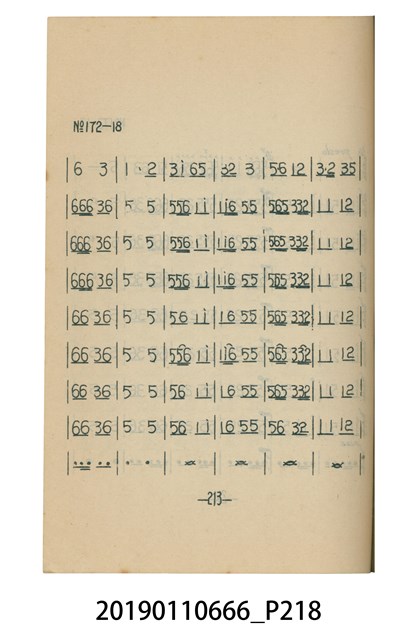 №172-18
| 6 3 | 1 · 2 | 3i 65 | 32 3 | 56 12 | 3·2 35
| 666 36 | 5 5 | 556 11 | 116 55 | 565 332 | 11 12 |
| 666 36 | 5 5 | 556 11 | 116 55 | 565 332 | 11 12 |
| 666 36 | 5 5 | 556 11 | 116 55 | 565 332 | 11 12 |
| 66 36 | 5 5 | 56 11 | 16 55 | 565 332 | 11 12 |
| 66 36 | 5 5 | 556 11 | 116 55 | 565 332 | 11 12 |
| 66 36 | 5 5 | 56 11 | 16 55 | 565 332 | 11 12 |
| 66 36 | 5 5 | 56 11 | 16 55 | 56 32 | 11 12 |
—213—
20190110666_P218